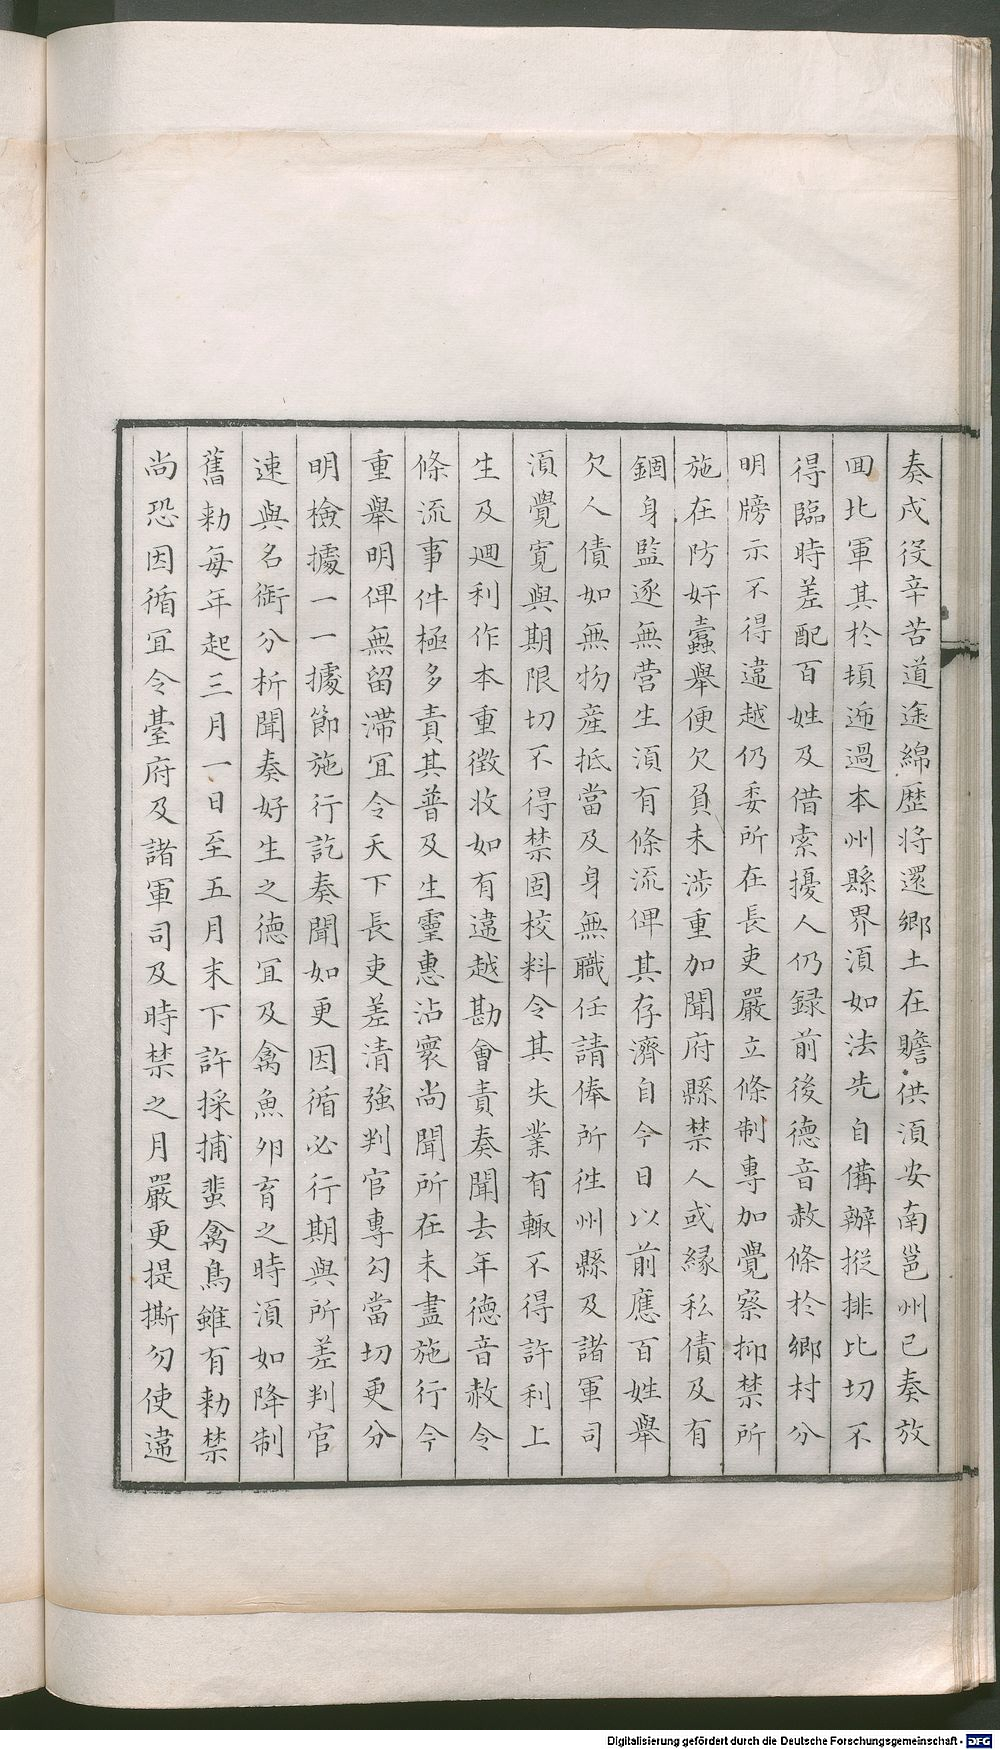 奏戍役辛苦道途綿歴將還鄉土在贍供湏安南邕州已奏放
囬北軍其於頓逓過本州縣界湏如法先自備辦摐排比切不
得臨時差配百姓及借索擾人仍録前後德音赦條於鄉村分
明牓示不得違越仍委所在長吏嚴立條制專加覺察抑禁所
施在防奸蠧舉便欠負未涉重加聞府縣禁人或縁私債及有
錮身監逐無营生湏有條流俾其存濟自今日以前應百姓舉
欠人債如無物產抵當及身無職任請俸所徃州縣及諸軍司
湏覺寛與期限切不得禁固校料令其失業有輙不得許利上
生及廽利作本重徵收如有違越勘會責奏聞去年德音赦令
條流事件極多責其普及生靈惠沾寰尚聞所在未盡施行今
重舉明俾無留滯冝令天下長吏差清強判官專勾當切更分
明檢據一一據節施行訖奏聞如更因循必行期與所差判官
速與名銜分析聞奏好生之德冝及禽魚卵育之時湏如降制
舊勅每年起三月一日至五月末下許採捕蜚禽鳥雖有勅禁
尚恐因循冝令臺府及諸軍司及時禁之月嚴更提撕勿使違
Digitalisierung gefördert durch die Deutsche Forschungsgemeinschaft - DFG